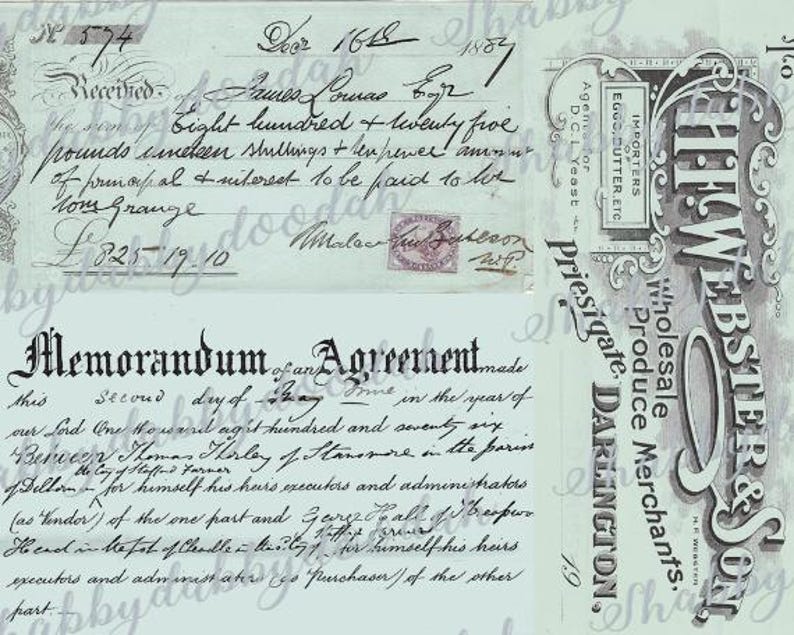 No 574 Decr 16th 1887
Received of James Lomas Esqr
the sum of Eight hundred & twenty five
pounds nineteen shillings & ten pence amount
of principal & interest to be paid to
Tom Grange
£ 825 - 19 - 10
Memorandum of an Agreement made
this second day of June in the year of
our Lord One thousand eight hundred and seventy six
Between Thomas Thorley of Stanmore in the parish
of Dilhorn in the Coy of Stafford Farmer for himself his heirs executors and administrators
(as Vendor) of the one part and George Hall of
Head in the of Cheadle in the Coy of Stafford Farmer for himself his heirs
executors and administrators (as Purchaser) of the other
part.
H.F. Webster & Son,
Wholesale
Produce Merchants,
Priestgate, Darlington,
IMPORTERS
OF
EGGS, BUTTER, ETC
Agents for
H.F. WEBSTER
19
Shabbydabbydoodah